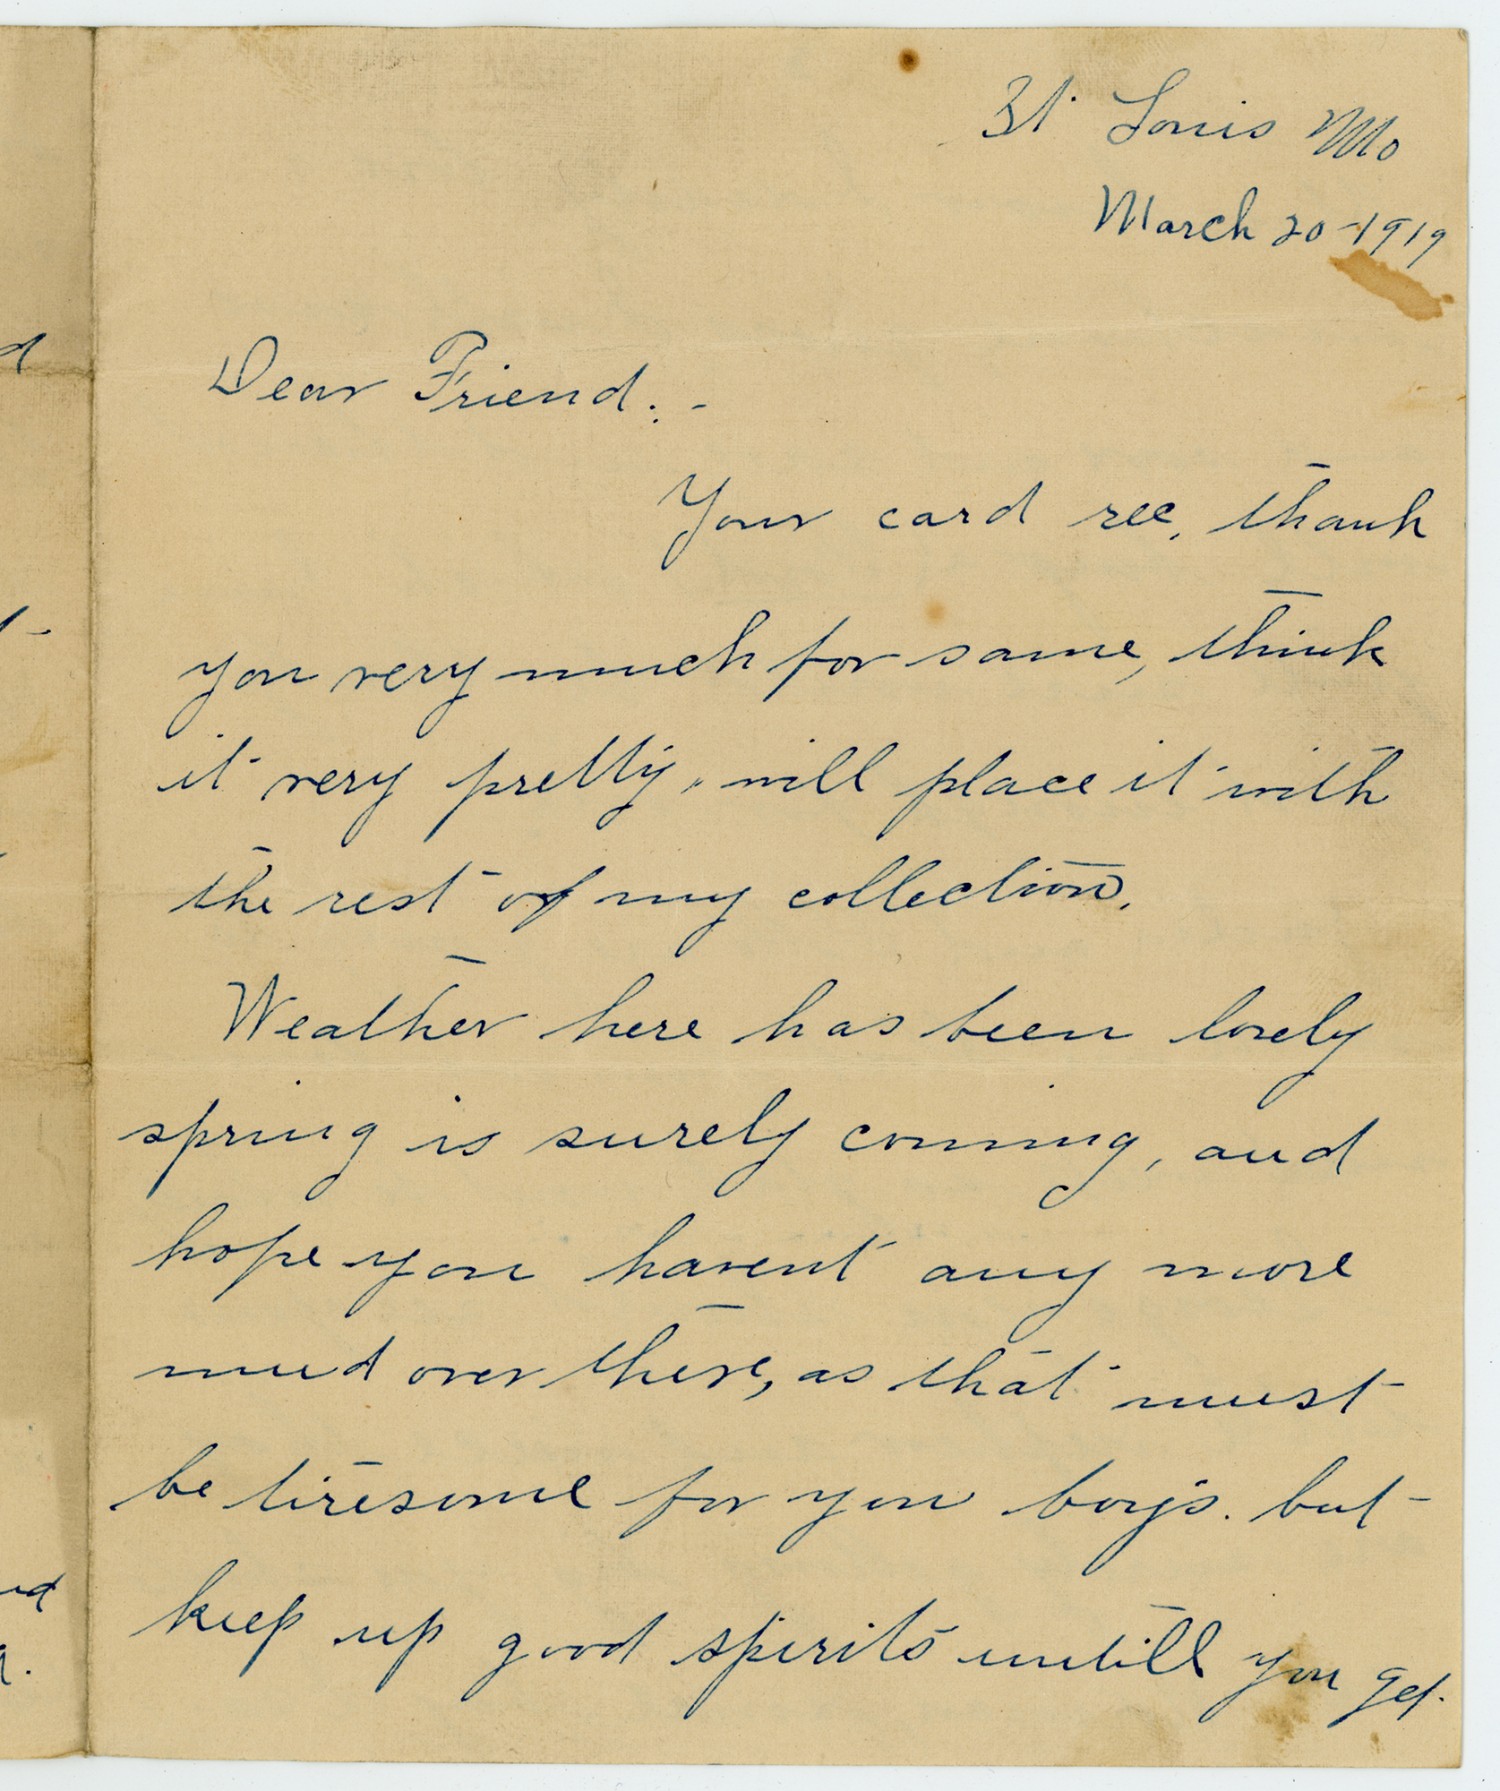 St Louis Mo
March 20-1919
Dear Friend:-
Your card rec, thank
you very much for same, think
it very pretty, will place it with
the rest of my collection.
Weather here has been lovely
spring is surely coming, and
hope you havent any more
mud over there, as that must
be tiresome for you boys. but
keep up good spirits untill you get